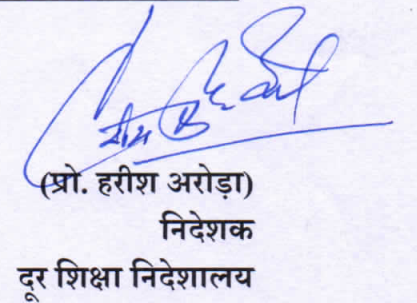 (प्रो. हरीश अरोड़ा)
निदेशक
दूर शिक्षा निदेशालय